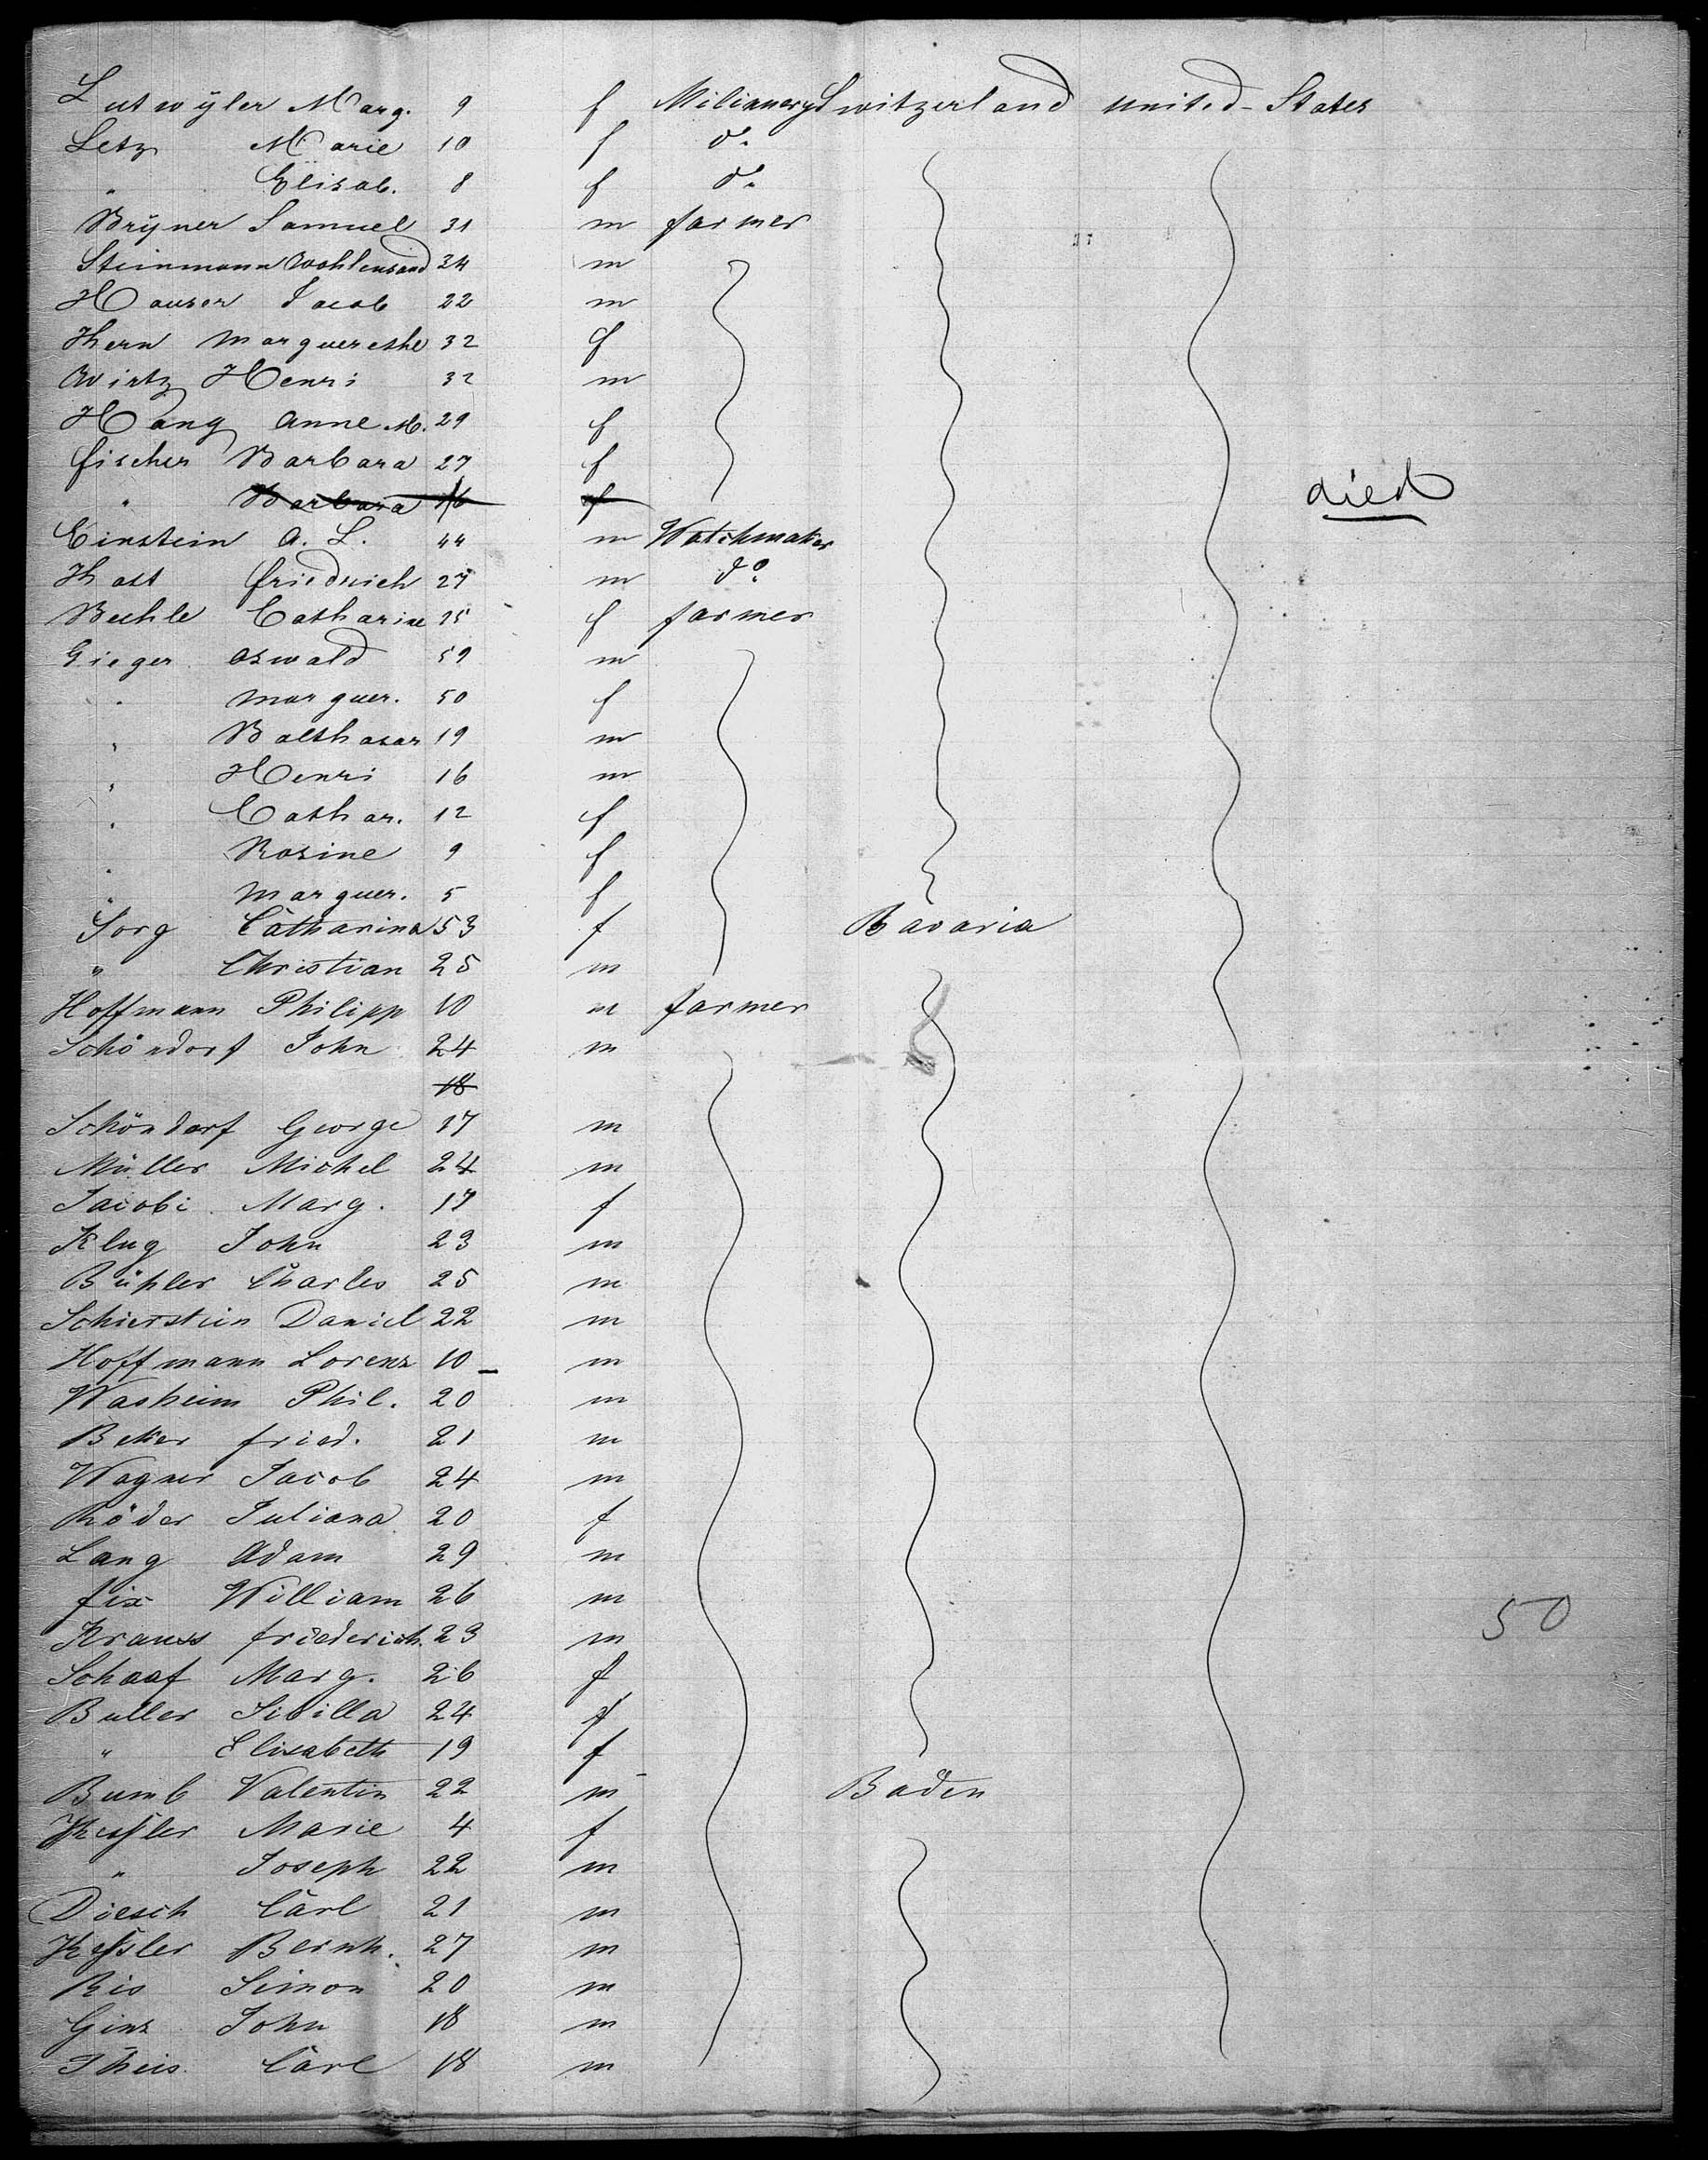 Lutwÿler Marg. 9 f Milinnery Switzerland united-States
Letz Marie 10 f do.
" Elisab. 8 f do.
Brÿner Samuel 31 m farmer
Steinmann Wohlensand 24 m
Hauser Jacob 22 m
Kern Marguerethe 32 f
Wirtz Henri 32 m
Hang Anne M. 29 f
fischer Barbara 27 f
" Barbara f died
Einstein A. L. 44 m Watchmaker
Hast friedrich 27 m do
Bechle Catharine 25 f farmer
Gieger Oswald 59 m
" Marguer. 50 f
" Balthasar 19 m
" Henri 16 m
" Cathar. 12 f
" Rosine 9 f
" Marguer. 5 f
Sorg Catharina 53 f Bavaria
" Christian 25 m
Hoffmann Philipp 10 m farmer
Schöndorf John 24 m
18
Schöndorf George 17 m
Müller Michel 24 m
Jacobi Marg. 17 f
Klug John 23 m
Bühler Charles 25 m
Schierstein Daniel 22 m
Hoffmann Lorenz 10 m
Washeim Phil. 20 m
Beker fried. 21 m
Wagner Jacob 24 m
Röder Juliana 20 f
Lang Adam 29 m
fix William 26 m 50
Krauss friederich. 23 m
Schaaf Marg. 26 f
Buller Sivilla 24 f
" Elisabeth 19 f
Bumb Valentin 22 m Baden
Kessler Marie 4 f
" Joseph 22 m
Diesch Carl 21 m
Kessler Bernh. 27 m
Ris Simon 20 m
Ginz John 18 m
Theis Carl 18 m